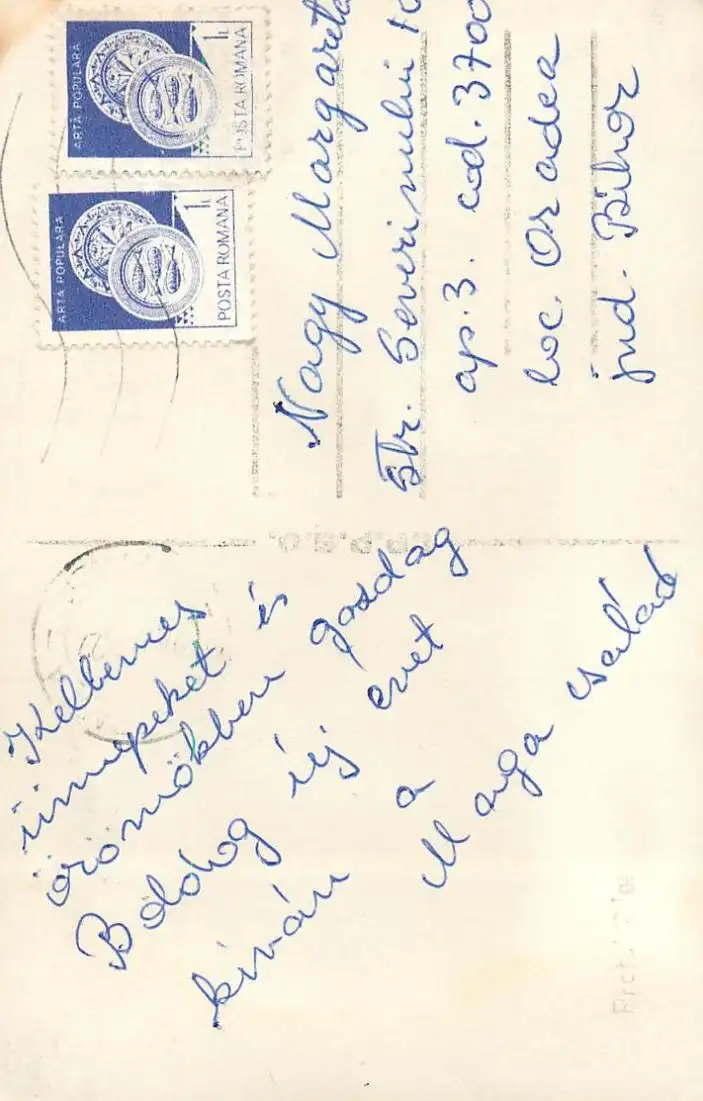 ARTĂ POPULARĂ
1L
POSTA ROMANA
ARTĂ POPULARĂ
1L
POSTA ROMANA
Nagy Margareta
Str. Severinului 10
ap. 3. cod. 3700
loc. Oradea
jud. Bihor
Kellemes
ünnepeket és
örömökben gazdag
Boldog új évet
kíván a
Marga család